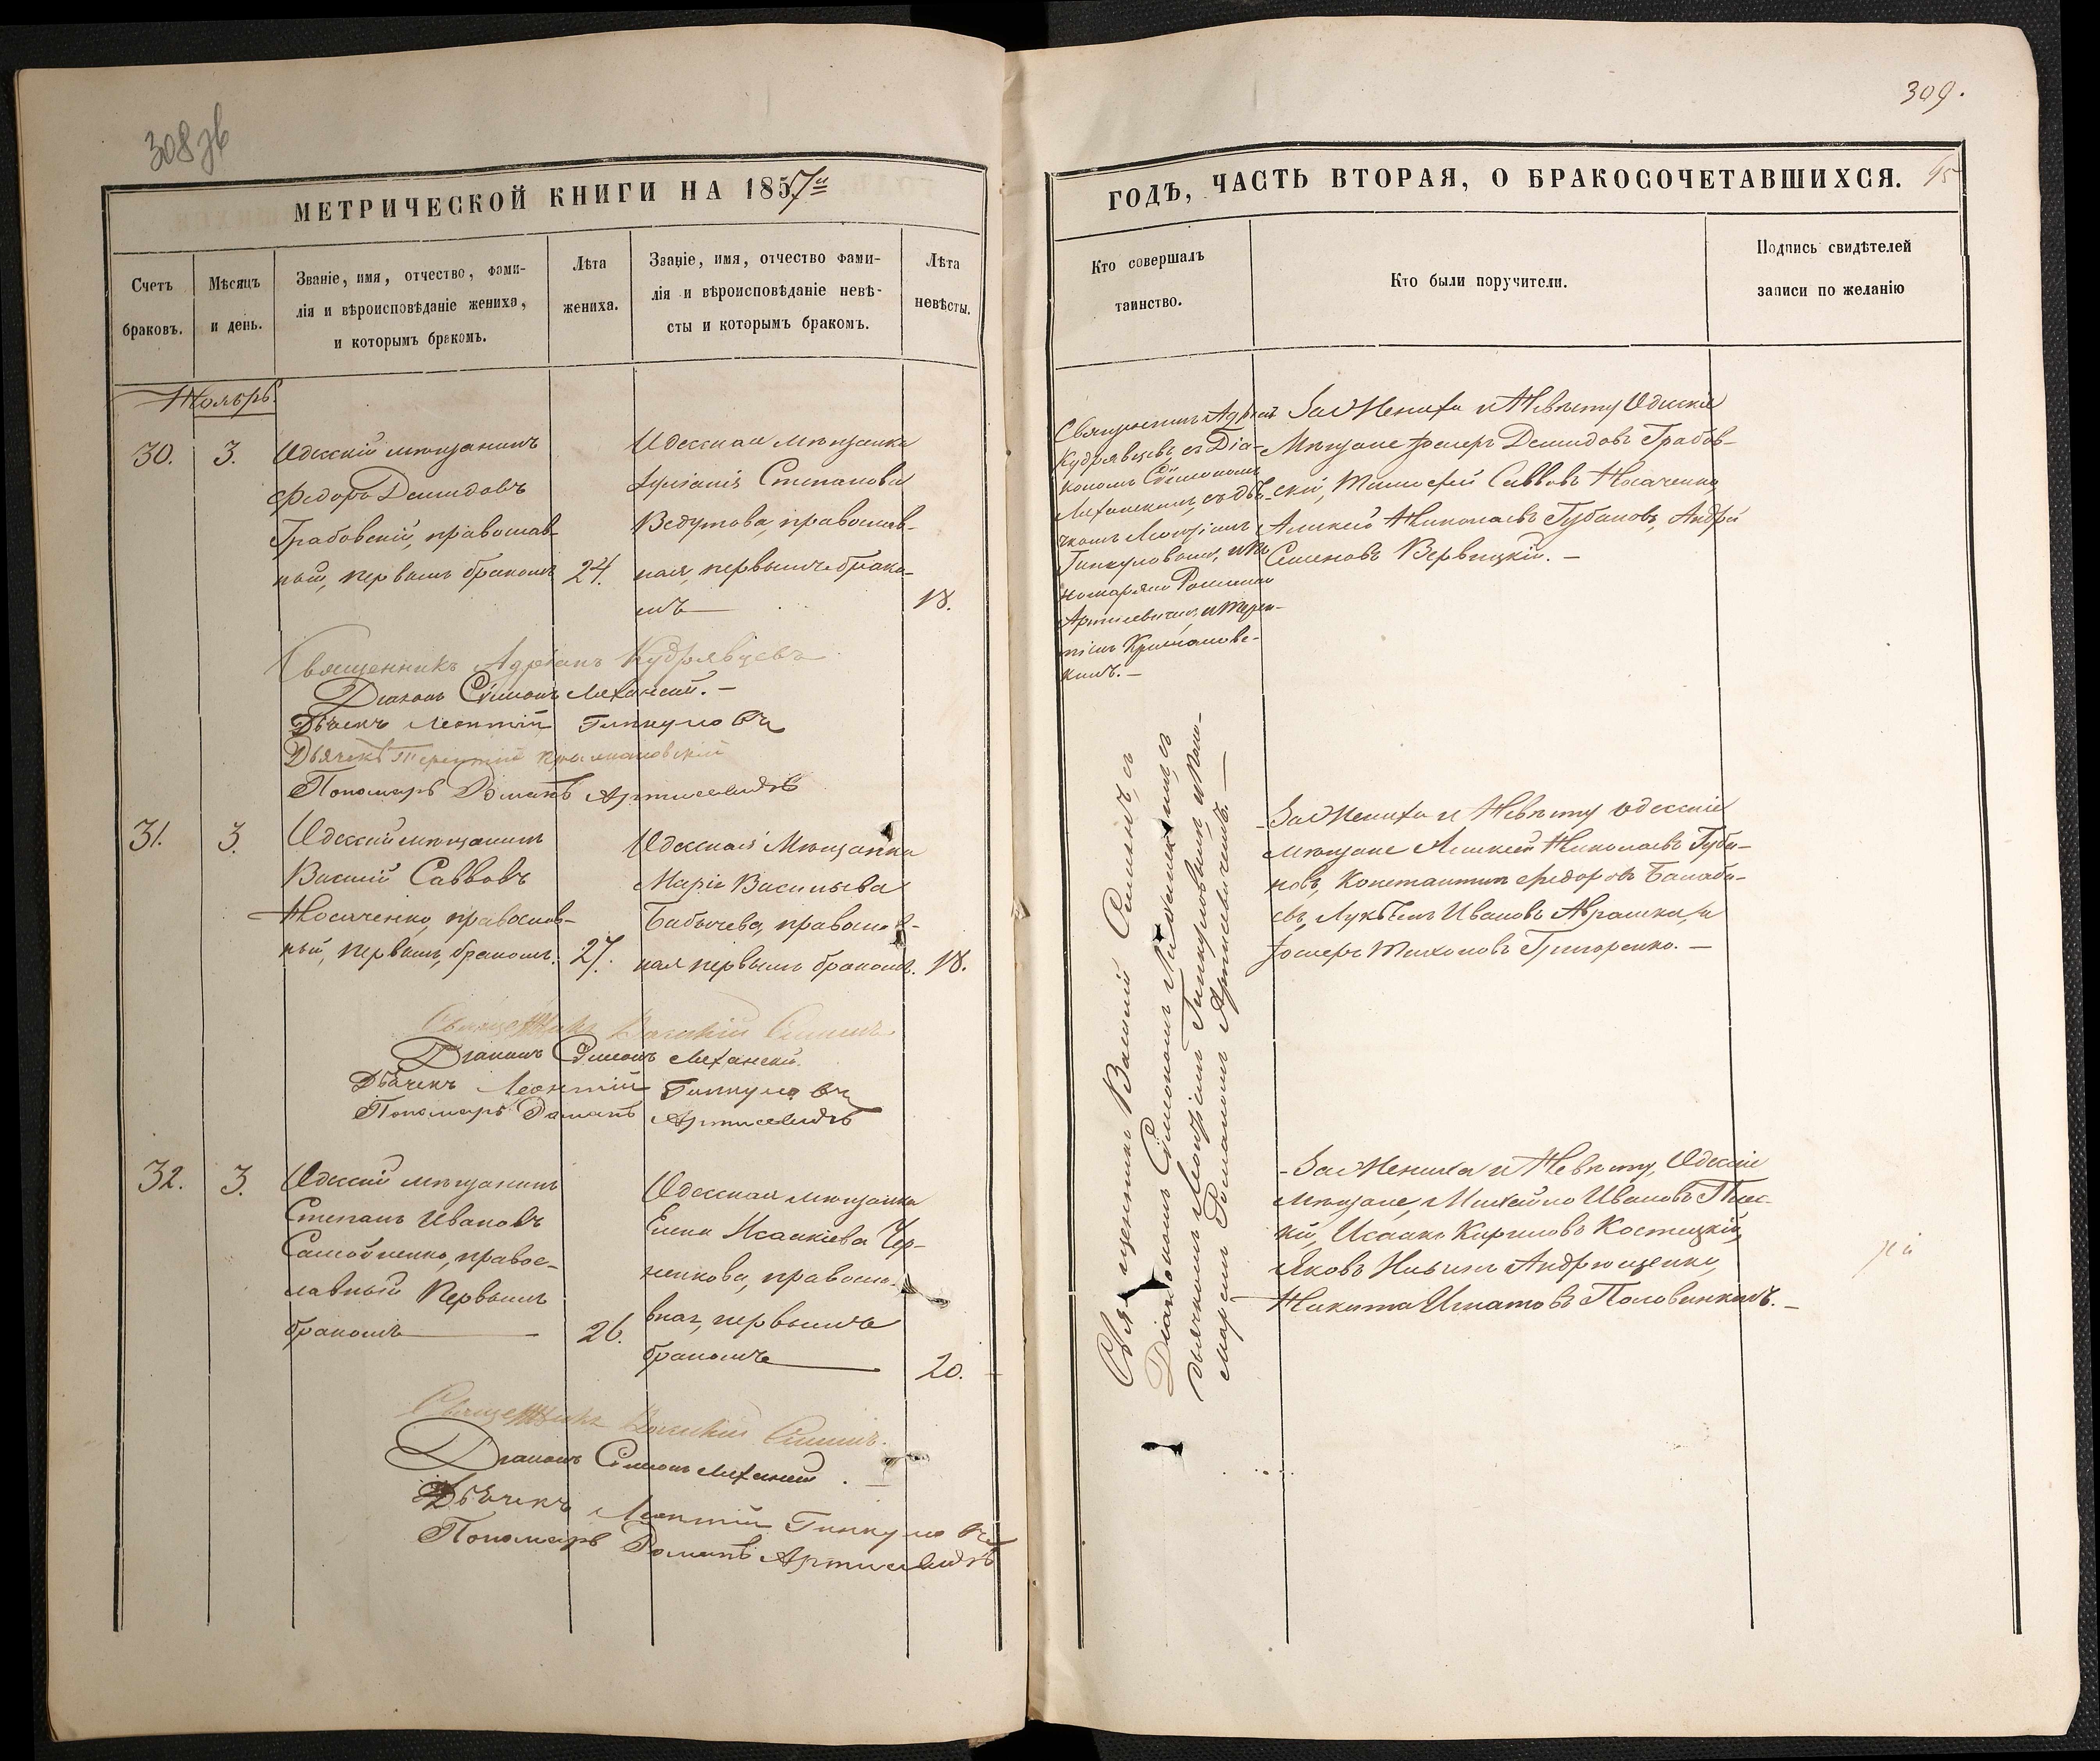 308 зв
МЕТРИЧЕСКОЙ КНИГИ НА 1857й
Счетъ
браковъ.
Мѣсяцъ
и день.
Званіе, имя, отчество, фами-
лія и вѣроисповѣданіе жениха,
и которымъ бракомъ.
Лѣта
жениха.
Званіе, имя, отчество фами-
лія и вѣроисповѣданіе невѣ-
сты и которымъ бракомъ.
Лѣта
невѣсты.
Ноябрь.
30.
3.
Одесскій мѣщанинъ
Федоръ Демидовъ
Грабовскій, православ-
ный, первымъ бракомъ
24.
Одесская мѣщанка
Степанова
Ведутова, православ-
ная, первымъ брако-
мъ
18.
Священникъ Адріанъ Кудрявцевъ
Діаконъ Сѵмеонъ Леханскій.
Дьячекъ Леонтій Гинкуловъ
Дьячекъ Терентій Крыжановскій
Пономарь Романъ Артисевичъ
31.
3.
Одесскій мѣщанинъ
Василій Саввовъ
Носаченко, православ-
ный, первымъ бракомъ.
27.
Одесская Мѣщанка
Марія Васильева
Бабычева, православ-
ная первымъ бракомъ.
18.
Священникъ Василій
Діаконъ Сѵмеонъ Леханскій.
Дьячекъ Леонтій Гинкуловъ
Пономарь Романъ Артисевичъ
32.
3.
Одесскій мѣщанинъ
Степанъ Ивановъ
Самойленко, правос-
лавный Первымъ
бракомъ
26.
Одесская мѣщанка
Елена Исаакіева Чер-
ненкова, правосла-
вная, первымъ
бракомъ
20.
Священникъ Василій
Діаконъ Сѵмеонъ Леханскій.
Дьячекъ Леонтій Гинкуловъ
Пономарь Романъ Артисевичъ
309.
ГОДЪ, ЧАСТЬ ВТОРАЯ, О БРАКОСОЧЕТАВШИХСЯ.
Кто совершалъ
таинство.
Кто были поручители.
Подпись свидѣтелей
записи по желанію
Священникъ Адріанъ
Кудрявцевъ съ Діа-
кономъ Сѵмеономъ
Леханскимъ, съ дья-
чкомъ Леонтіемъ
Гинкуловымъ, и По-
номаремъ Романомъ
Артисевичемъ, и Терен-
тіемъ Крыжановс-
кимъ.
За Жениха и Невѣсту Одескіе
Мѣщане Іосифъ Демидовъ Грабов-
скій, Тимофей Саввовъ Носаченко,
Алексѣй Николаевъ Губановъ, Андрей
Семеновъ Вервицкій.
Священникъ Василій съ
Діакономъ Сѵмеономъ Леханскимъ, съ
дьячкомъ Леонтіемъ Гинкуловымъ и Поно-
маремъ Романомъ Артисевичемъ.
За Жениха и Невѣсту Одесскіе
мѣщане Алексѣй Николаевъ Губа-
новъ, Константинъ Федоровъ Балаба-
евъ, Ивановъ
Іосифъ Тихоновъ Григоренко.
За Жениха и Невѣсту, Одескіе
Мѣщане, Михайло Ивановъ
кій, Исаакъ Кириловъ Костецкій,
Яковъ Андрющенко,
Никита Игнатовъ Половинкинъ.